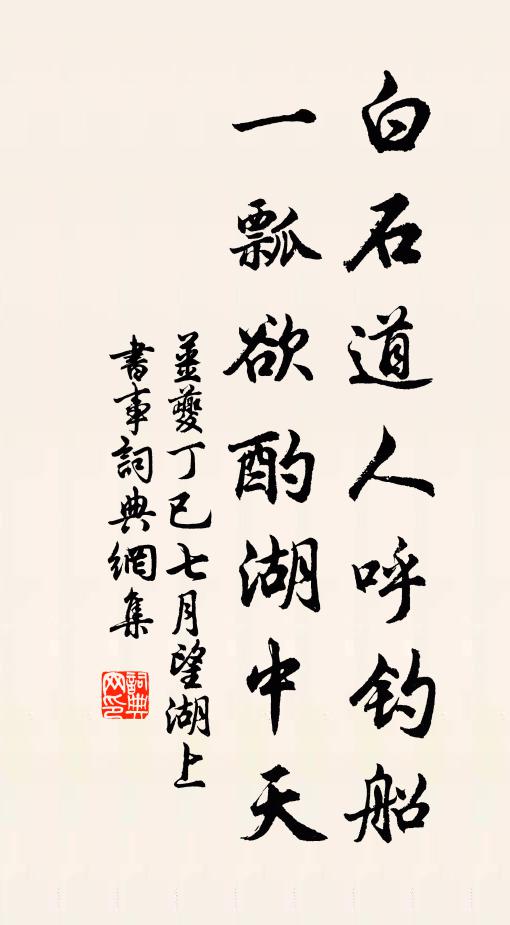 白石道人呼钓船
一瓢欲酌湖中天
姜夔丁巳七月望湖上
書事詞典網集
詞典網印